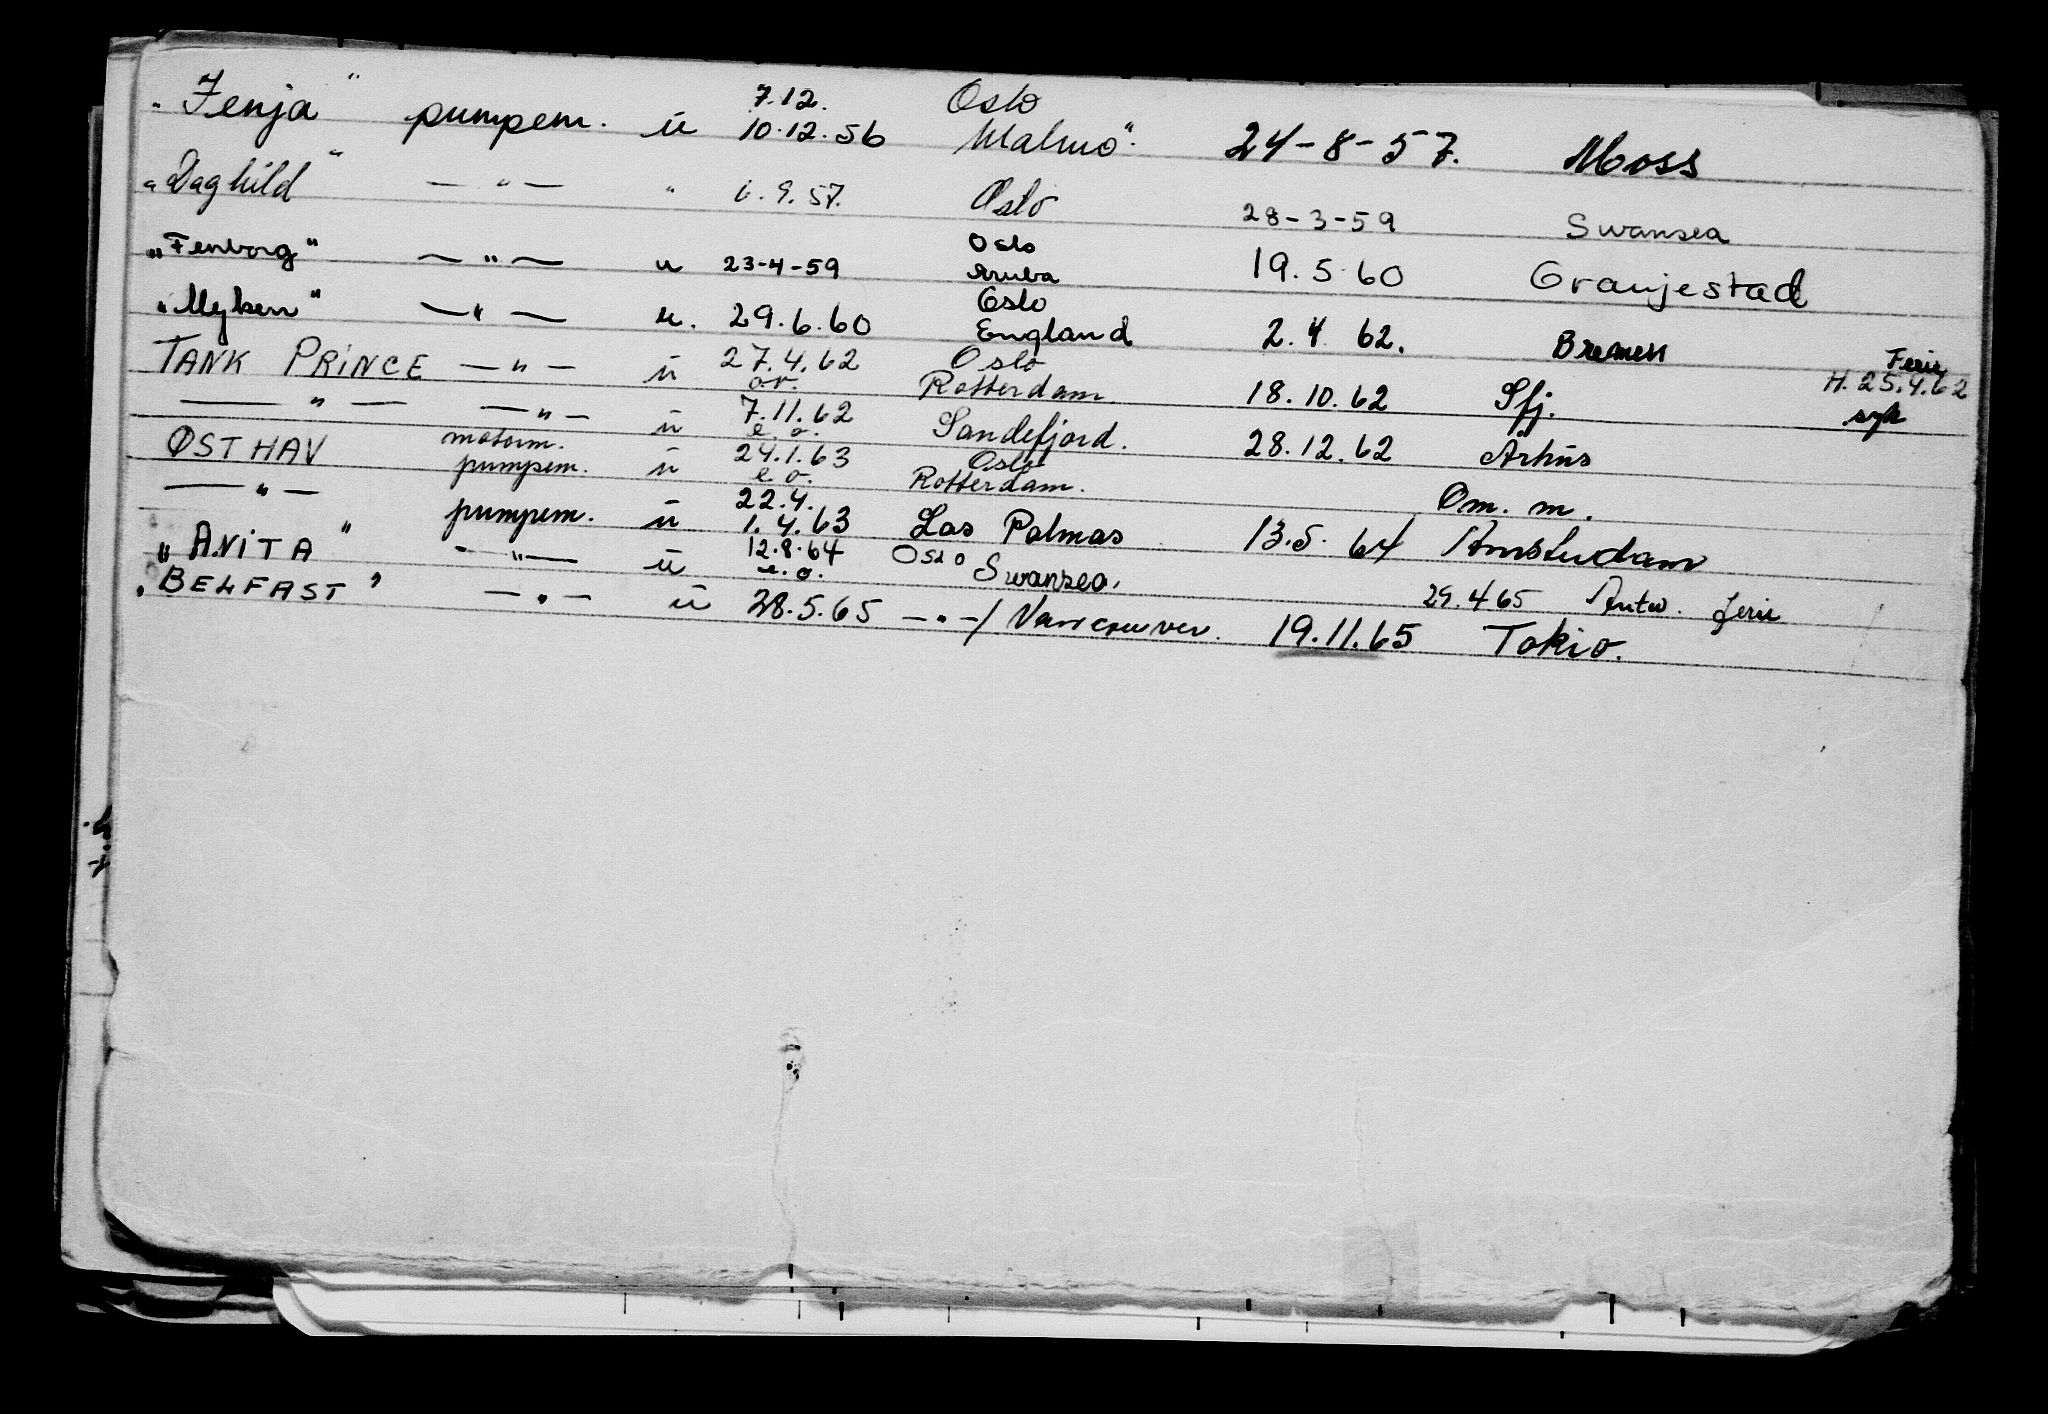 "Fenja" pumpem. u 7.12. 10.12.56 Oslo Malmö. 24-8-57. Moss
"Daghild" — " — " 6.9.57. Oslo 28-3-59 Swansea
"Fenborg" — " — u 23-4-59 Oslo Aruba 19.5.60 Oranjestad
"Myken" — " — u. 29.6.60 Oslo England 2.4 62. Bremen
TANK PRINCE — " — u 27.4.62 ov. Oslo Rotterdam 18.10.62 Sfj. Ferie H. 25.4.62
— " — — " — u 7.11.62 e.o. Sandefjord. 28.12.62 Århus syk
ØSTHAV motorm. pumpem. u 24.1.63 e.o. Oslo Rotterdam.
— " — pumpem. u 22.4. 1.4.63 Las Palmas 13.5. 64 Om. m. Amsterdam
"ANITA" — " — u 12.8.64 e.o. Oslo Swansea. 29.4 65 Antw. ferie
"BELFAST" — " — u 28.5.65 — " —/ Vancouver. 19.11.65 Tokio.